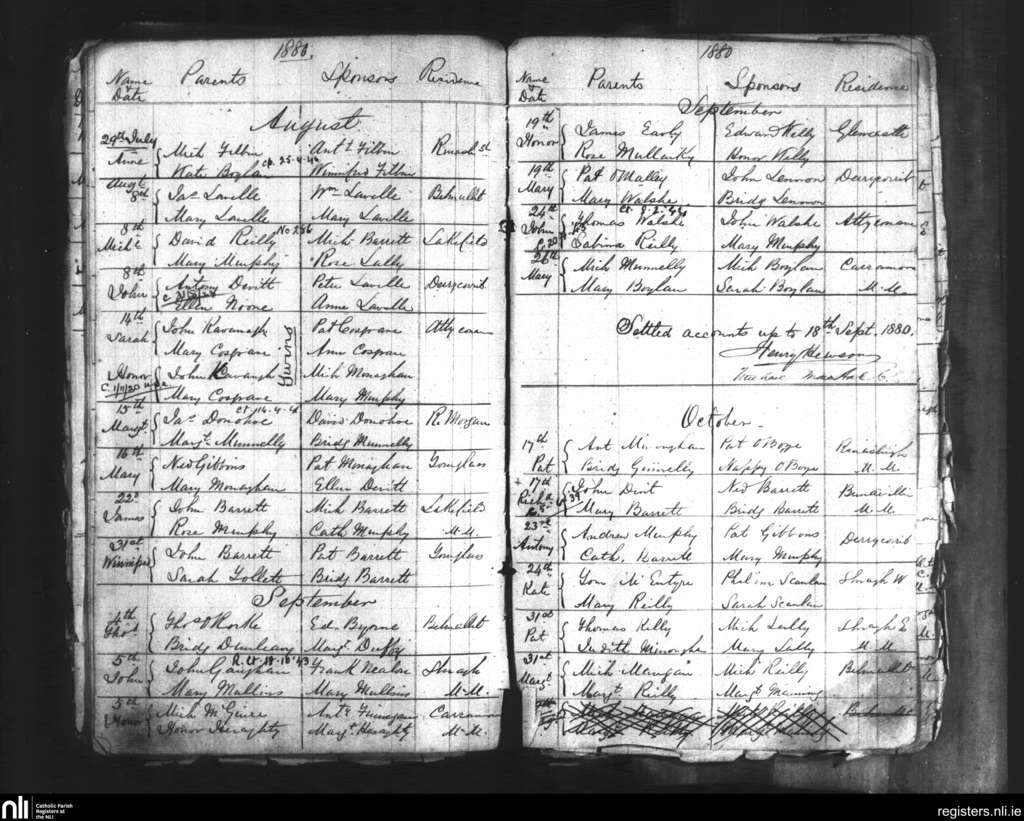 1880.
Name & Date Parents Sponsors Residence
August
29th July Mich Filbin Antt Filbin
Anne Kate Boylan Ct. 25-4-46 Winifred Filbin
Augt 8th Jas Lavelle Wm Lavelle Belmullet
Mary Lavelle Mary Lavelle
8th David Reilly No 286 Mich Barrett Lakefield
Michl Mary Murphy Rose Lally
8th Antony Devitt Peter Lavelle Derrycorrib
John Ellen Noone Anne Lavelle
14th John Kavanagh Pat Cosgrave
Sarah Mary Cosgrave Ann Cosgrave
Twins
Honor John Kavanagh Mich Monaghan
C. 1/11/20 Mary Cosgrave Mary Murphy
15th Jas Donohoe Ct. 14-4-4 David Donohoe R. Morgan
Margt Margt Munnelly Bridg Munnelly
16th Ned Gibbons Pat Monaghan Tonglass
Mary Mary Monaghan Ellen Devitt
22d John Barrett Mich Barrett Lakefield
James Rose Murphy Cath Murphy M.M.
31st John Barrett Pat Barrett Tonglass
Winnifred Sarah Gollett Bridg Barrett
September
4th Thos O'Rorke Ed. Byrne Belmullet
Thos Bridg Dunleavy Margt Duffy
5th John Gaughan R. Ct. 18-10-43 Frank Nealon Shragh
John Mary Mullins Mary Mullins M.M.
5th Mich McGuire Antt Finnegan Carramore
Honor Honor Heraghty Margt Heraghty M.M.
1880
Name & Date Parents Sponsors Residence
September
19th James Early Edward Kelly Glencastle
Honor Rose Mullarky Honor Kelly
19th Pat O'Malley John Lennon Derrycorrib
Mary Mary Walshe Bridg Lennon
24th Thomas Walshe John Walshe Attyconane
John Sabina Reilly Mary Murphy
26th Mich Munnelly Mich Boylan Carramore
Mary Mary Boylan Sarah Boylan M.M.
Settled accounts up to 18th Sept. 1880.
Henry Hewson
October
17th Ant Minoghan Pat O'Boye
Pat Bridg Ginnelly Nappy O'Boye M.M.
+ 17th John Divit Ned Barrett
Richd Mary Barrett Bridg Barrett M.M.
23rd Andrew Murphy Pat Gibbons Derrycorrib
Antony Cath. Barrett Mary Murphy
24th Tom McEntyre Phelim Scanlan Shragh W
Kate Mary Reilly Sarah Scanlan
31st Thomas Kelly Mich Lally Shragh E
Pat Judith Minoghan Mary Lally M.M.
31st Mich Mangan Mich Reilly Belmullet
Margt Margt Reilly Margt Manning
nli Catholic Parish Registers at the NLI
registers.nli.ie